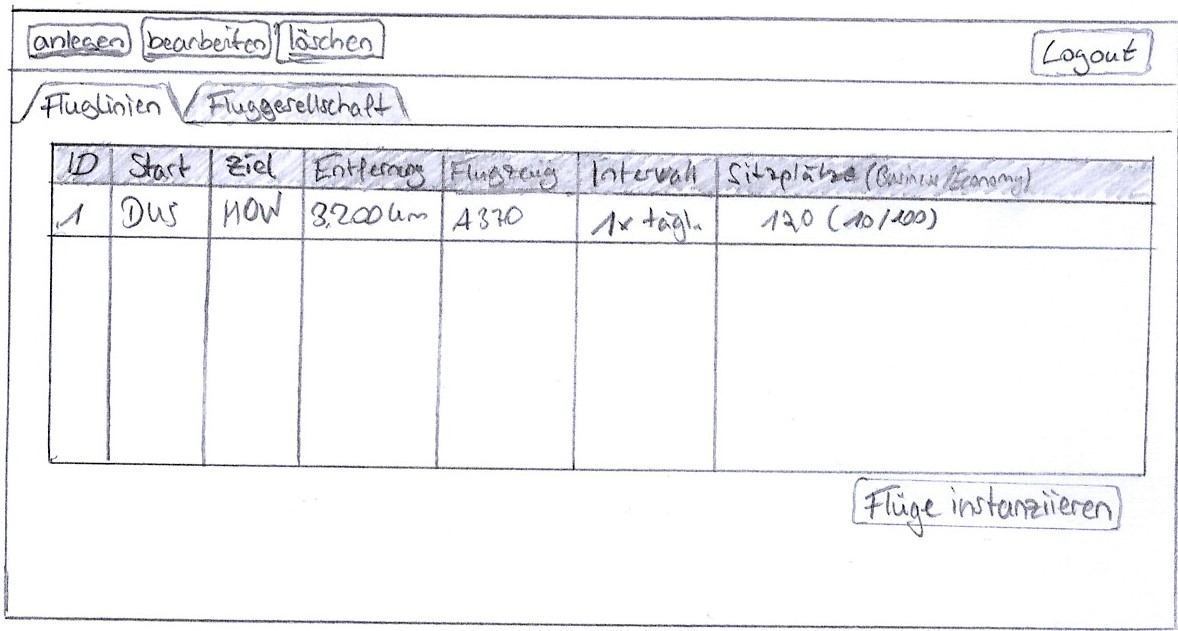 anlegen bearbeiten löschen Logout
Fluglinien Fluggesellschaft
ID Start Ziel Entfernung Flugzeug Intervall Sitzplätze (Business/Economy)
1 DUS MOW 3.200 km A370 1x tägl. 120 (10/100)
Flüge instanziieren